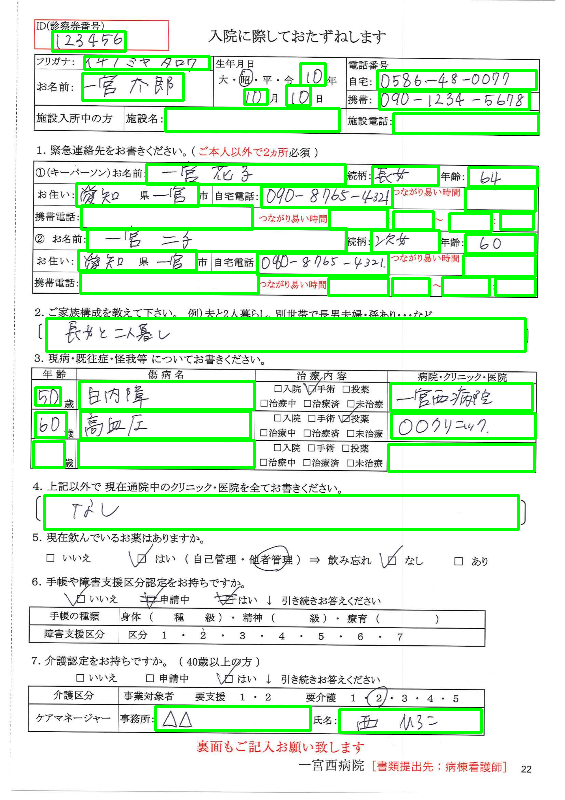 ID(診察券番号)
123456
入院に際しておたずねします
フリガナ: イチノミヤ タロウ 生年月日 電話番号
お名前: 一宮 太郎 大・昭・平・令 10年 自宅: 0586-48-0077
10月 10日 携帯: 090-1234-5678
施設入所中の方 施設名: 施設電話:
1. 緊急連絡先をお書きください。(ご本人以外で2ヵ所必須)
①(キーパーソン)お名前: 一宮 花子 続柄: 長女 年齢: 64
お住い: 愛知 県 一宮 市 自宅電話: 090-8765-4321 つながり易い時間
携帯電話: つながり易い時間 : ~ :
② お名前: 一宮 二子 続柄: 次女 年齢: 60
お住い: 愛知 県 一宮 市 自宅電話 090-8765-4321. つながり易い時間
携帯電話: つながり易い時間 : ~ :
2. ご家族構成を教えて下さい。 例)夫と2人暮らし、別世帯で長男夫婦・孫あり・・・など
長女と二人暮し
3. 現病・既往症・怪我等 についてお書きください。
年齢 傷病名 治療内容 病院・クリニック・医院
50歳 白内障 □入院 ☑手術 □投薬 一宮西病院
□治療中 □治療済 □未治療
60歳 高血圧 □入院 □手術 ☑投薬 〇〇クリニック.
□治療中 □治療済 □未治療
歳 □入院 □手術 □投薬
□治療中 □治療済 □未治療
4. 上記以外で 現在通院中のクリニック・医院を全てお書きください。
なし
5. 現在飲んでいるお薬はありますか。
□ いいえ ☑ はい (自己管理・他者管理) ⇒ 飲み忘れ ☑ なし □ あり
6. 手帳や障害支援区分認定をお持ちですか。
☑ いいえ □ 申請中 はい ↓ 引き続きお答えください
手帳の種類 身体( 種 級)・精神( 級)・療育( )
障害支援区分 区分 1・2・3・4・5・6・7
7. 介護認定をお持ちですか。(40歳以上の方)
□ いいえ □ 申請中 ☑ はい ↓ 引き続きお答えください
介護区分 事業対象者 要支援 1・2 要介護 1・2・3・4・5
ケアマネージャー 事務所: △△ 氏名: 西 ひろこ
裏面もご記入お願い致します
一宮西病院 [書類提出先:病棟看護師] 22